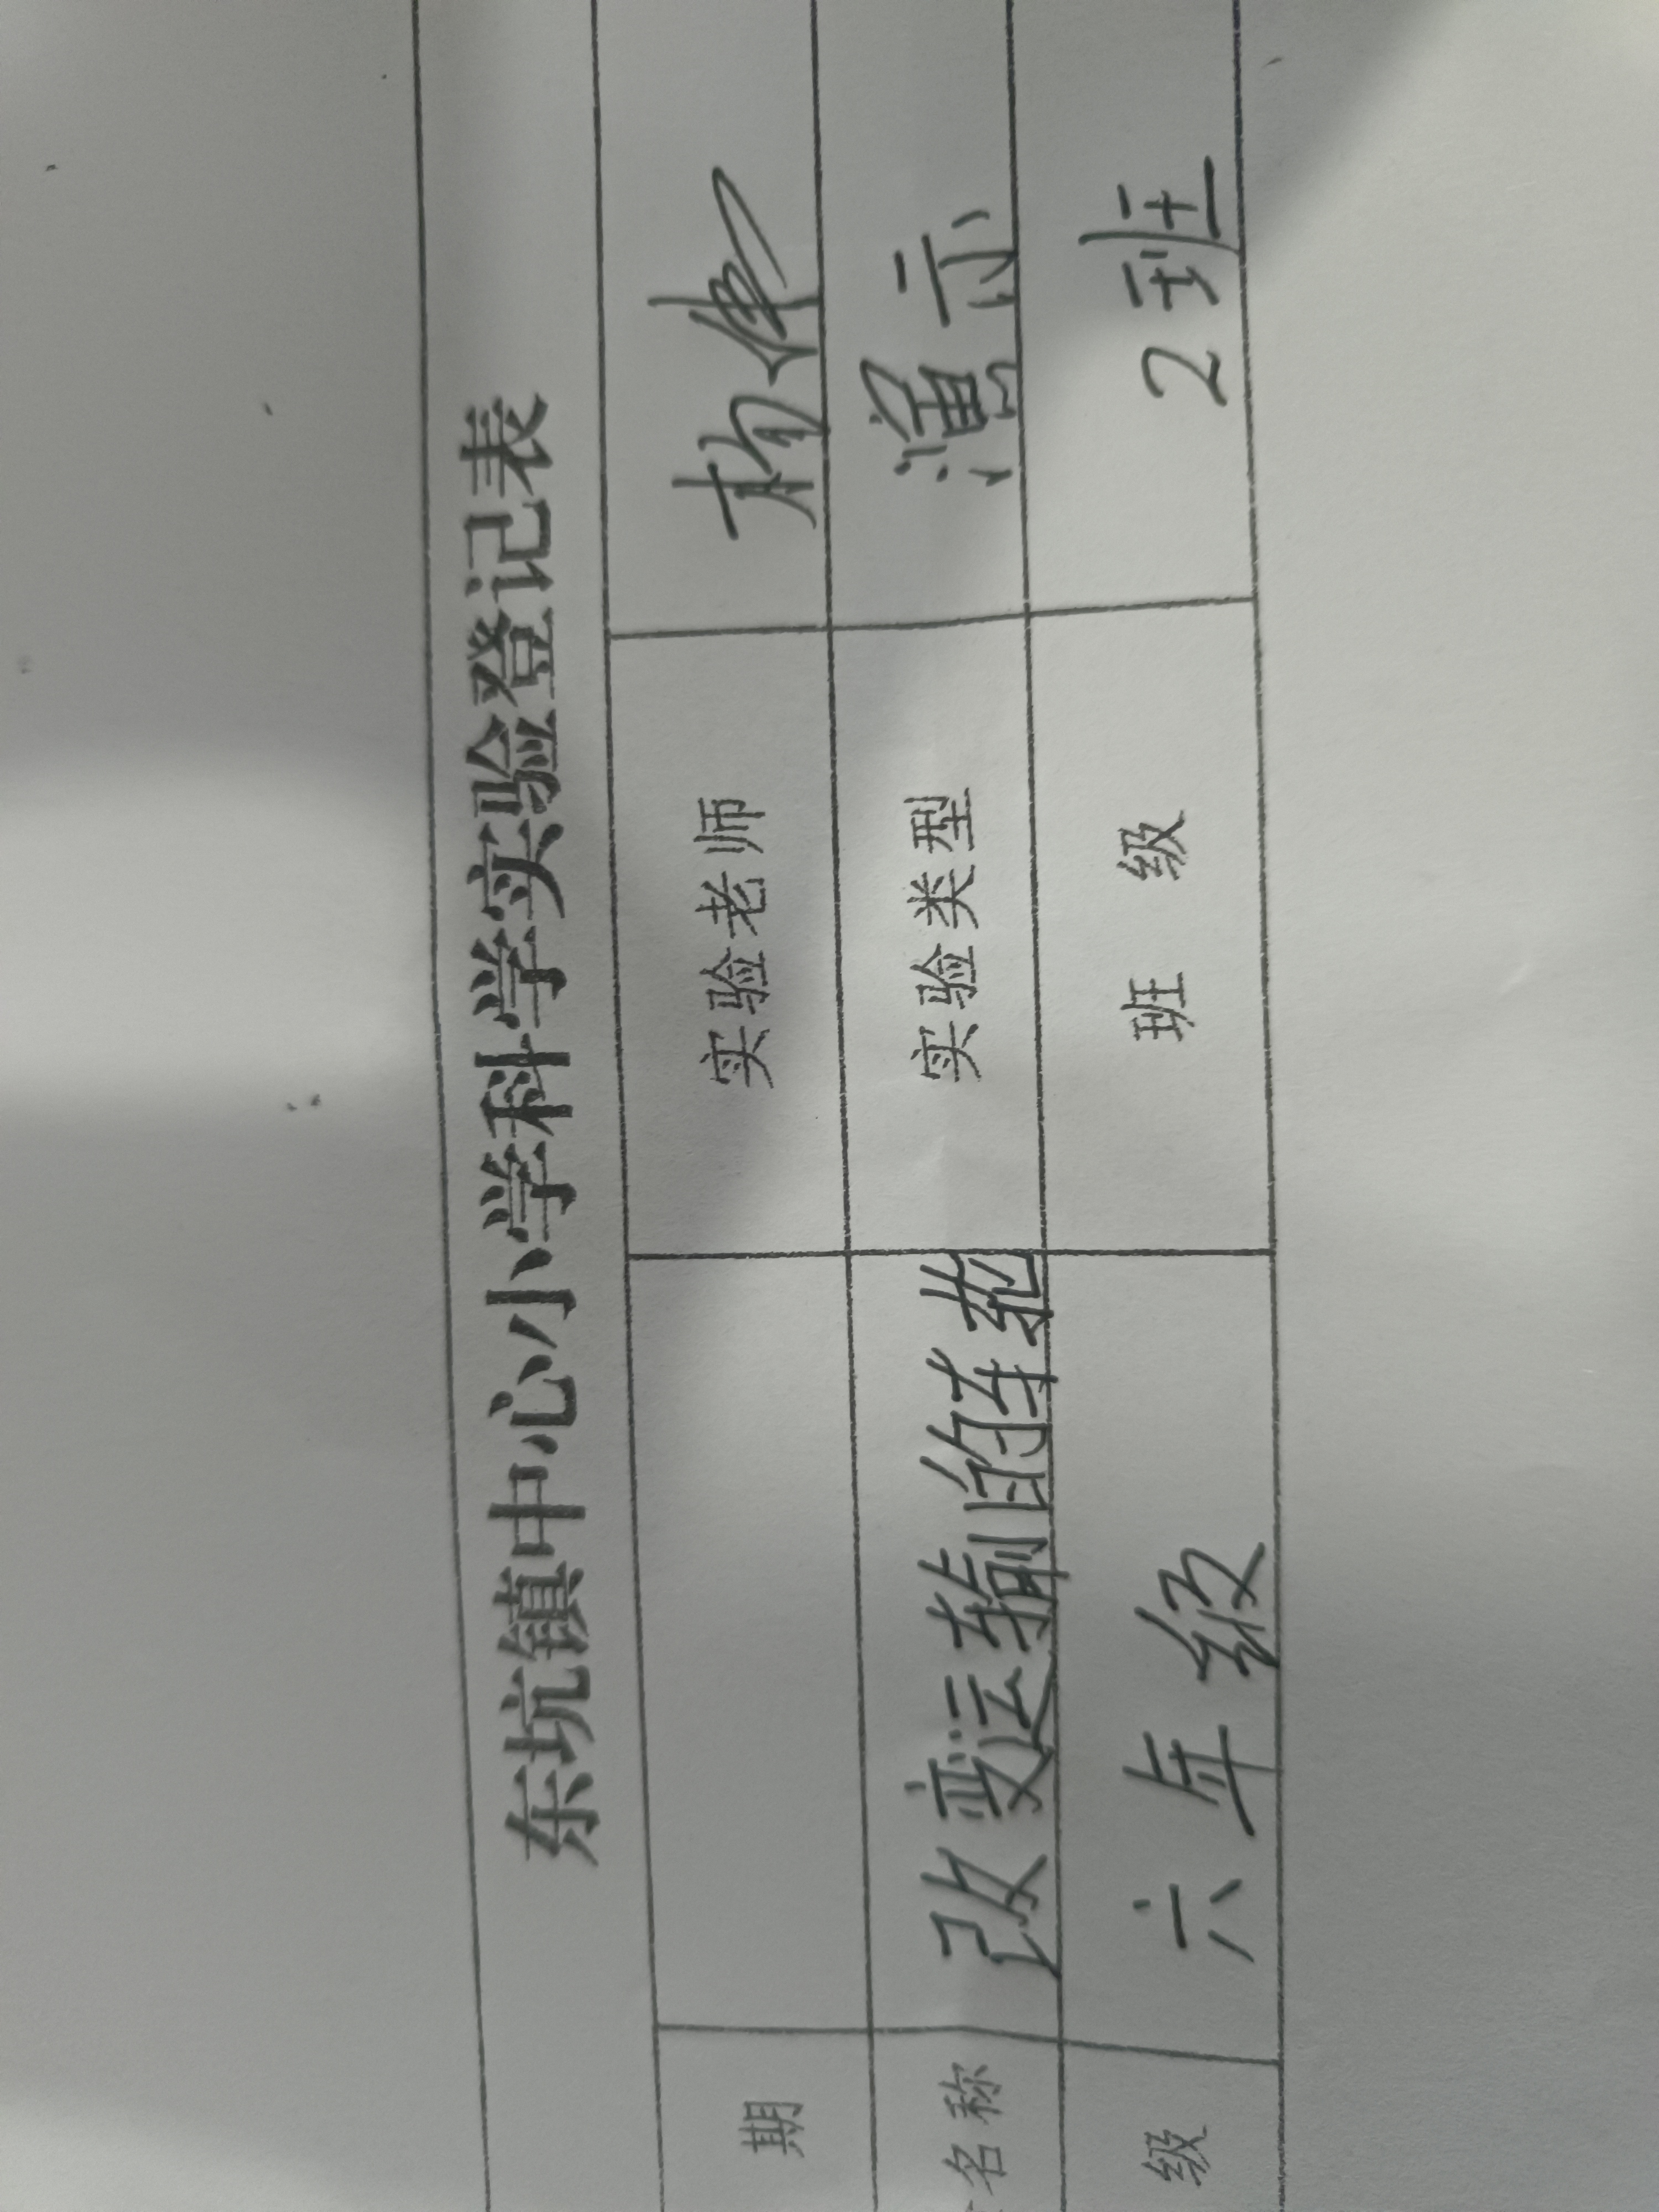 东坑镇中心小学科学实验登记表
期 实验老师 杨伟
名称 改变运输的车轮 实验类型 演示
级 六年级 班 级 2班